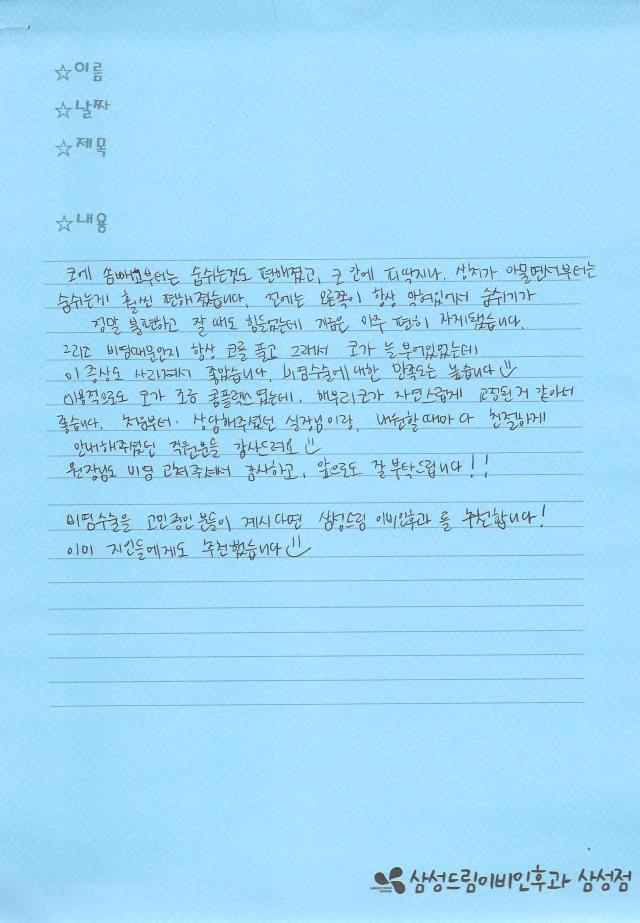 ☆이름
☆날짜
☆제목
☆내용
코에 솜빼고부터는 숨쉬는것도 편해졌고, 코 안에 피딱지나, 상처가 아물면서부터는
숨쉬는게 훨씬 편해졌습니다. 전에는 오른쪽이 항상 막혀있어서 숨쉬기가
정말 불편하고 잘 때도 힘들었는데 지금은 아주 편히 자게됐습니다.
그리고 비염때문인지 항상 코를 풀고 그래서 코가 늘 부어있었는데
이 증상도 사라져서 좋았습니다. 비염수술에 대한 만족도는 높습니다
미용적으로도 코가 조금 콤플렉스였는데, 매부리코가 자연스럽게 교정된거 같아서
좋습니다. 처음부터 상담해주셨던 실장님이랑, 내원할때마다 친절하게
안내해주셨던 직원분들 감사드려요
원장님도 비염 고쳐주셔서 감사하고, 앞으로도 잘부탁드립니다!!
비염수술을 고민중인 분들이 계시다면 삼성드림 이비인후과를 추천합니다!
이미 지인들에게도 추천했습니다
삼성드림이비인후과 삼성점